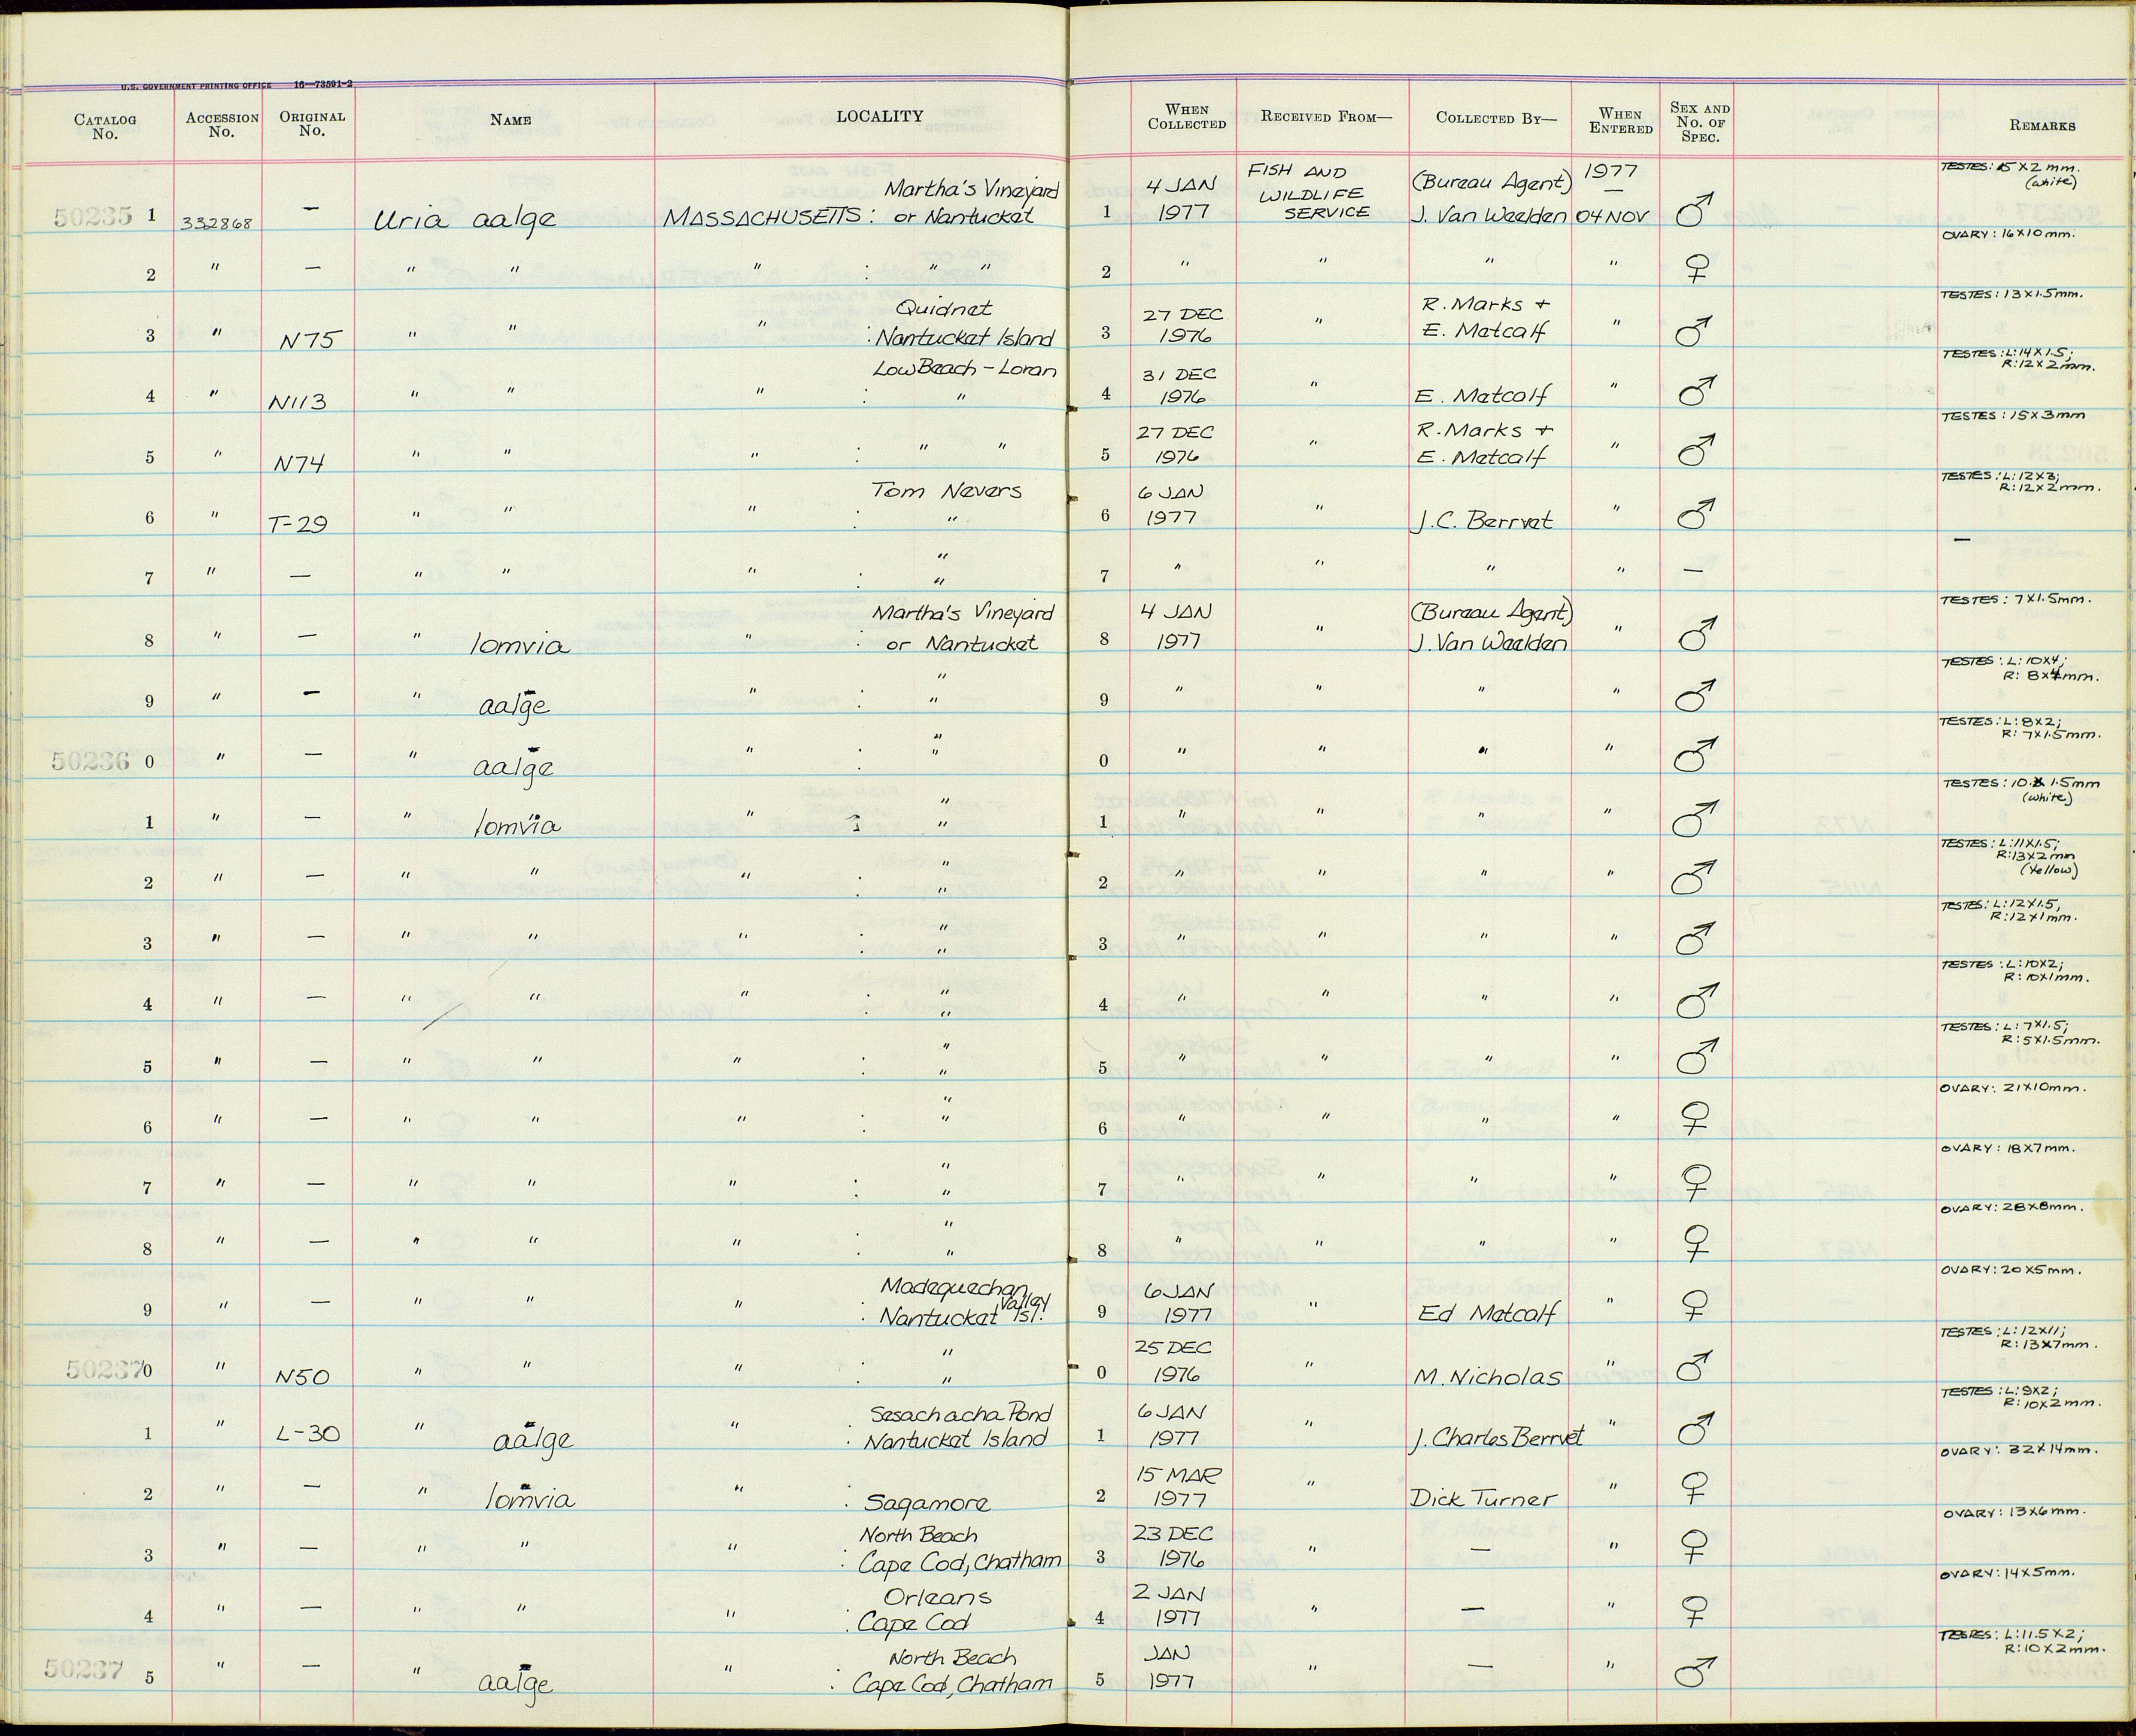 U.S. GOVERNMENT PRINTING OFFICE 16—73591-2
CATALOG No. ACCESSION No. ORIGINAL No. NAME LOCALITY WHEN COLLECTED RECEIVED FROM— COLLECTED BY— WHEN ENTERED SEX AND No. OF SPEC. REMARKS
50235 1 332868 — Uria aalge MASSACHUSETTS : Martha's Vineyard or Nantucket 1 4 JAN 1977 FISH AND WILDLIFE SERVICE (Bureau Agent) J. Van Waelden 1977 — 04 NOV ♂ TESTES: 15X2 mm. (white)
2 " — " " " : " " 2 " " " " ♀ OVARY: 16X10mm.
3 " N75 " " " : Quidnet Nantucket Island 3 27 DEC 1976 " R. Marks + E. Metcalf " ♂ TESTES: 13X1.5mm.
4 " N113 " " " : Low Beach – Loran " 4 31 DEC 1976 " E. Metcalf " ♂ TESTES: L:14X1.5; R:12X2mm.
5 " N74 " " " : " " 5 27 DEC 1976 " R. Marks + E. Metcalf " ♂ TESTES: 15X3mm
6 " T-29 " " " : Tom Nevers " 6 6 JAN 1977 " J.C. Berrvet " ♂ TESTES: L:12X3; R:12X2mm.
7 " — " " " : " " 7 " " " " — —
8 " — " lomvia " : Martha's Vineyard or Nantucket 8 4 JAN 1977 " (Bureau Agent) J. Van Waelden " ♂ TESTES: 7X1.5mm.
9 " — " aalge " : " " 9 " " " " ♂ TESTES: L:10X4; R: 8X4mm.
50236 0 " — " aalge " : " " 0 " " " " ♂ TESTES: L:8X2; R: 7X1.5mm.
1 " — " lomvia " : " " 1 " " " " ♂ TESTES: 10 X 1.5mm (white)
2 " — " " " : " " 2 " " " " ♂ TESTES: L:11X1.5; R:13X2mm (Yellow)
3 " — " " " : " " 3 " " " " ♂ TESTES: L:12X1.5, R:12X1mm.
4 " — " " " : " " 4 " " " " ♂ TESTES: L:10X2; R:10X1mm.
5 " — " " " : " " 5 " " " " ♂ TESTES: L: 7X1.5; R:5X1.5mm.
6 " — " " " : " " 6 " " " " ♀ OVARY: 21X10mm.
7 " — " " " : " " 7 " " " " ♀ OVARY: 18X7mm.
8 " — " " " : " " 8 " " " " ♀ OVARY: 28X8mm.
9 " — " " " : Madequechan Valley Nantucket Isl. 9 6 JAN 1977 " Ed Metcalf " ♀ OVARY: 20X5mm.
50237 0 " N50 " " " : " " 0 25 DEC 1976 " M. Nicholas " ♂ TESTES: L:12X11; R:13X7mm.
1 " L-30 " aalge " : Sesachacha Pond Nantucket Island 1 6 JAN 1977 " J. Charles Berrvet " ♂ TESTES: L:9X2; R:10X2mm.
2 " — " lomvia " : Sagamore 2 15 MAR 1977 " Dick Turner " ♀ OVARY: 32X14mm.
3 " — " " " : North Beach Cape Cod, Chatham 3 23 DEC 1976 " — " ♀ OVARY: 13X6mm.
4 " — " " " : Orleans Cape Cod 4 2 JAN 1977 " — " ♀ OVARY: 14X5mm.
50237 5 " — " aalge " : North Beach Cape Cod, Chatham 5 JAN 1977 " — " ♂ TESTES: L:11.5X2; R:10X2mm.